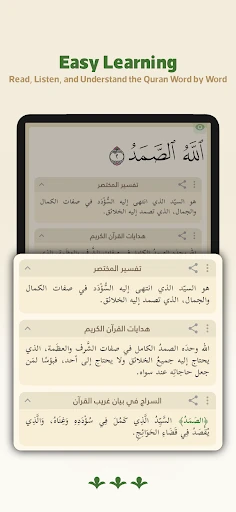 Easy Learning
Read, Listen, and Understand the Quran Word by Word
ٱللَّهُ ٱلصَّمَدُ ٢
تفسير المختصر
هو السيّد الذي انتهى إليه السُّؤْدَد في صفات الكمال
والجمال، الذي تصمد إليه الخلائق.
هدايات القرآن الكريم
تفسير المختصر
هو السيّد الذي انتهى إليه السُّؤْدَد في صفات الكمال
والجمال، الذي تصمد إليه الخلائق.
هدايات القرآن الكريم
الله وحدَه الصمدُ الكامل في صفات الشَّرف والعظمة، الذي
يحتاج إليه جميعُ الخلائق ولا يحتاج إلى أحد، فبؤسًا لمَن
جعل حاجاتِه عند سواه.
السراج في بيان غريب القرآن
﴿الصَّمَدُ﴾ السَّيِّدُ الَّذِي كَمُلَ فِي سُؤْدَدِهِ وَغِنَاهُ، وَالَّذِي
يُقْصَدُ فِي قَضَاءِ الحَوَائِجِ.